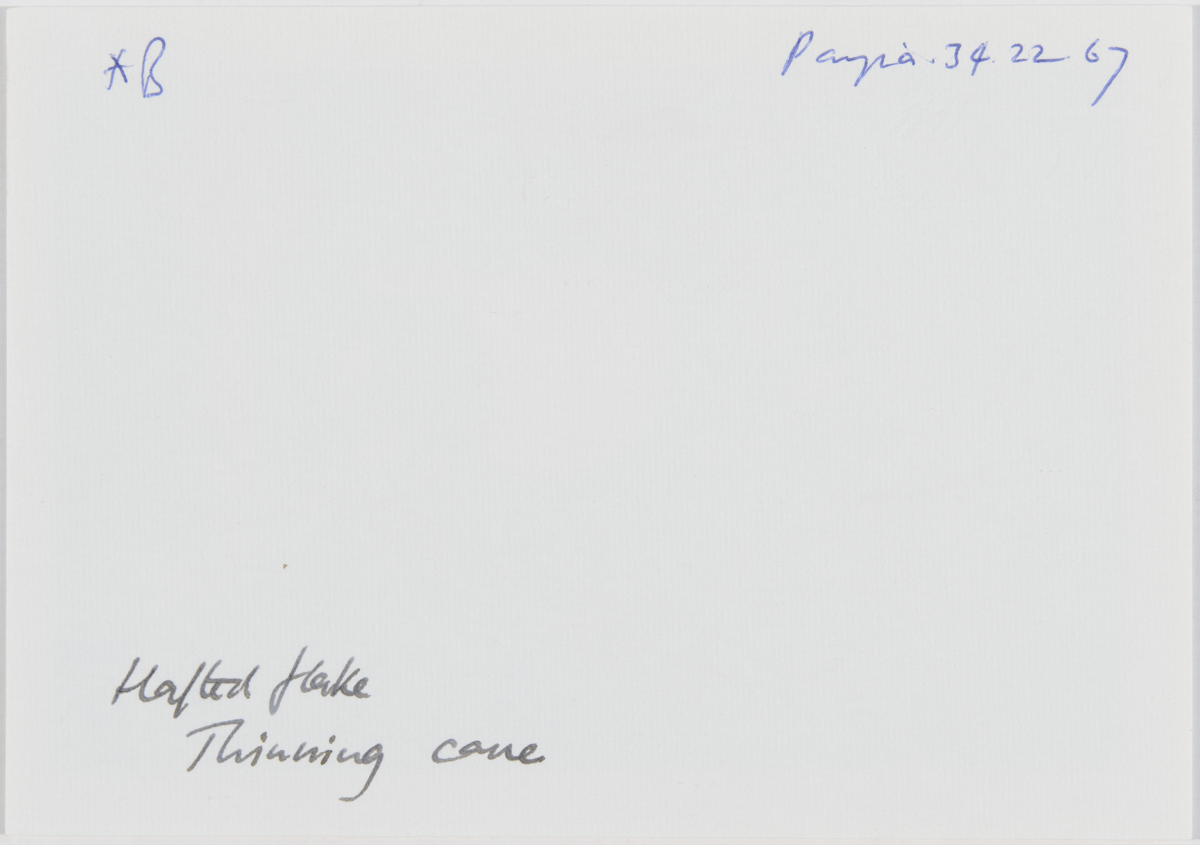 *B
Paupia. 34. 22. 67
Hafted flake
Thinning cane